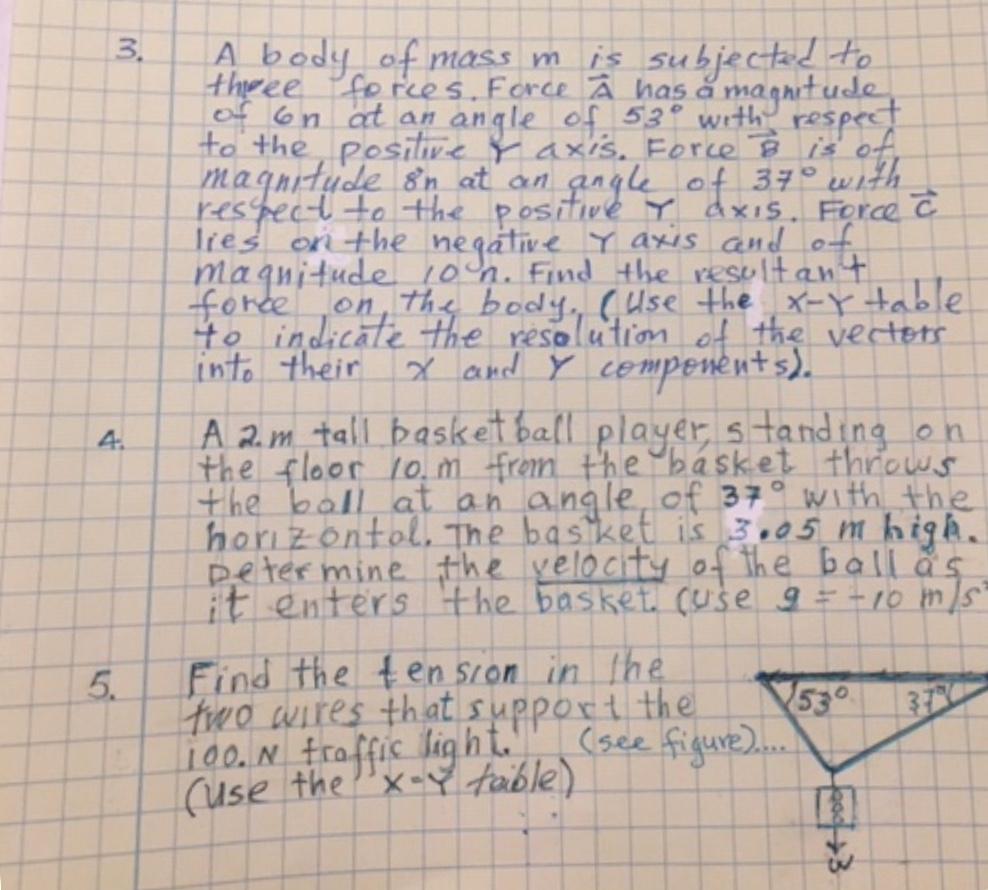 3. A body of mass m is subjected to
three forces. Force A⃗ has a magnitude
of 6n at an angle of 53° with respect
to the positive Y axis. Force B⃗ is of
magnitude 8n at an angle of 37° with
respect to the positive Y axis. Force C⃗
lies on the negative Y axis and of
magnitude 10 n. Find the resultant
force on the body. (Use the X-Y table
to indicate the resolution of the vectors
into their X and Y components).
4. A 2.m tall basketball player, standing on
the floor 10.m from the basket throws
the ball at an angle of 37° with the
horizontal. The basket is 3.05 m high.
Determine the velocity of the ball as
it enters the basket. (use g = -10 m/s²
5. Find the tension in the
two wires that support the
100. N traffic light. (see figure)....
(Use the X-Y table)
53° 37°
W